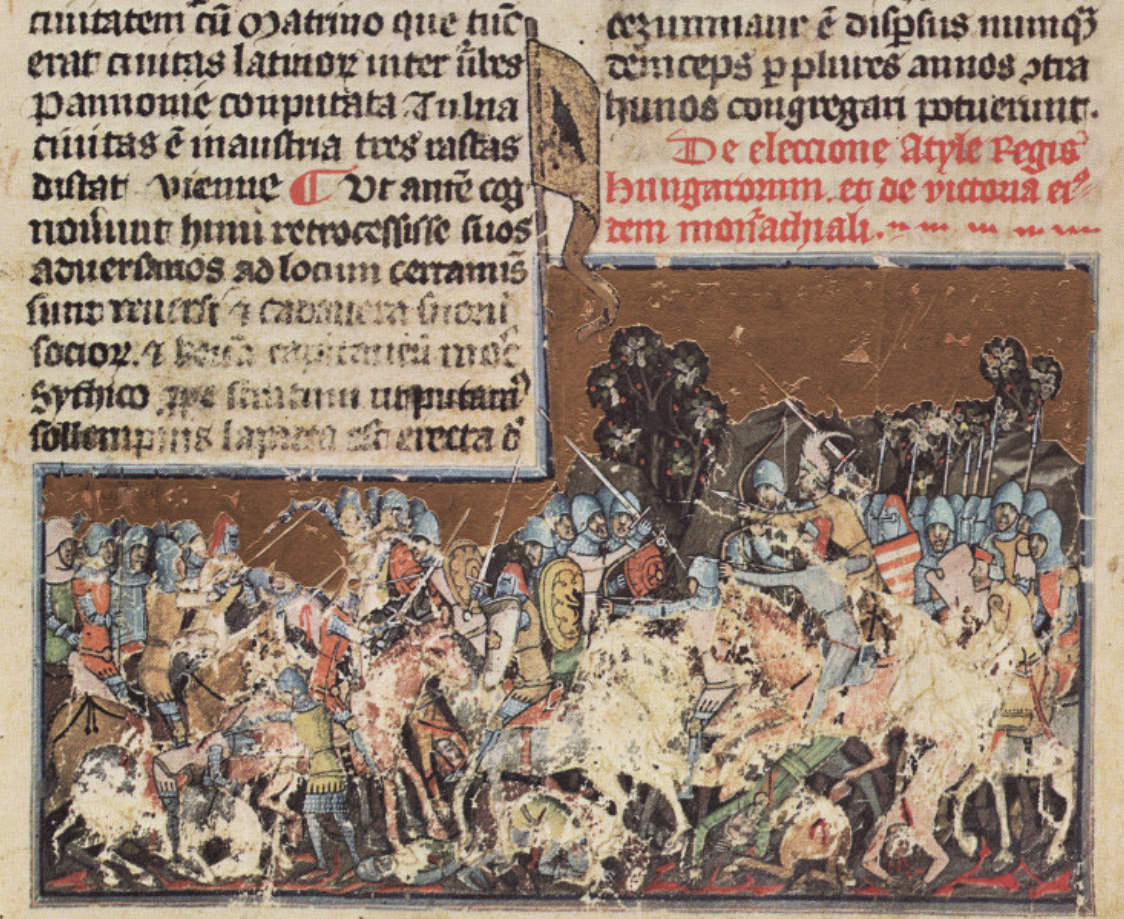 ciuitatem cū Matrino que tūc
erat ciuitas latinoꝝ inter ūbes
Pannonie conputata Tulna
ciuitas ē inaustria tres rastas
distat vienne ¶ Vt autē cog
nouiunt huni retrocessisse suos
aduersarios ad locum certamīs
sunt reuersi ⁊ cadauera suorū
socioꝝ. ⁊
Sythico
sollempnis lapidea est erecta
ē disp̄sus numqꝫ
deinceps ꝑ plures annos ꝯtra
hunos congregari potuerunt.
De eleccione Atyle Regis
hungarorum. et de victoria eiꝰ
dem